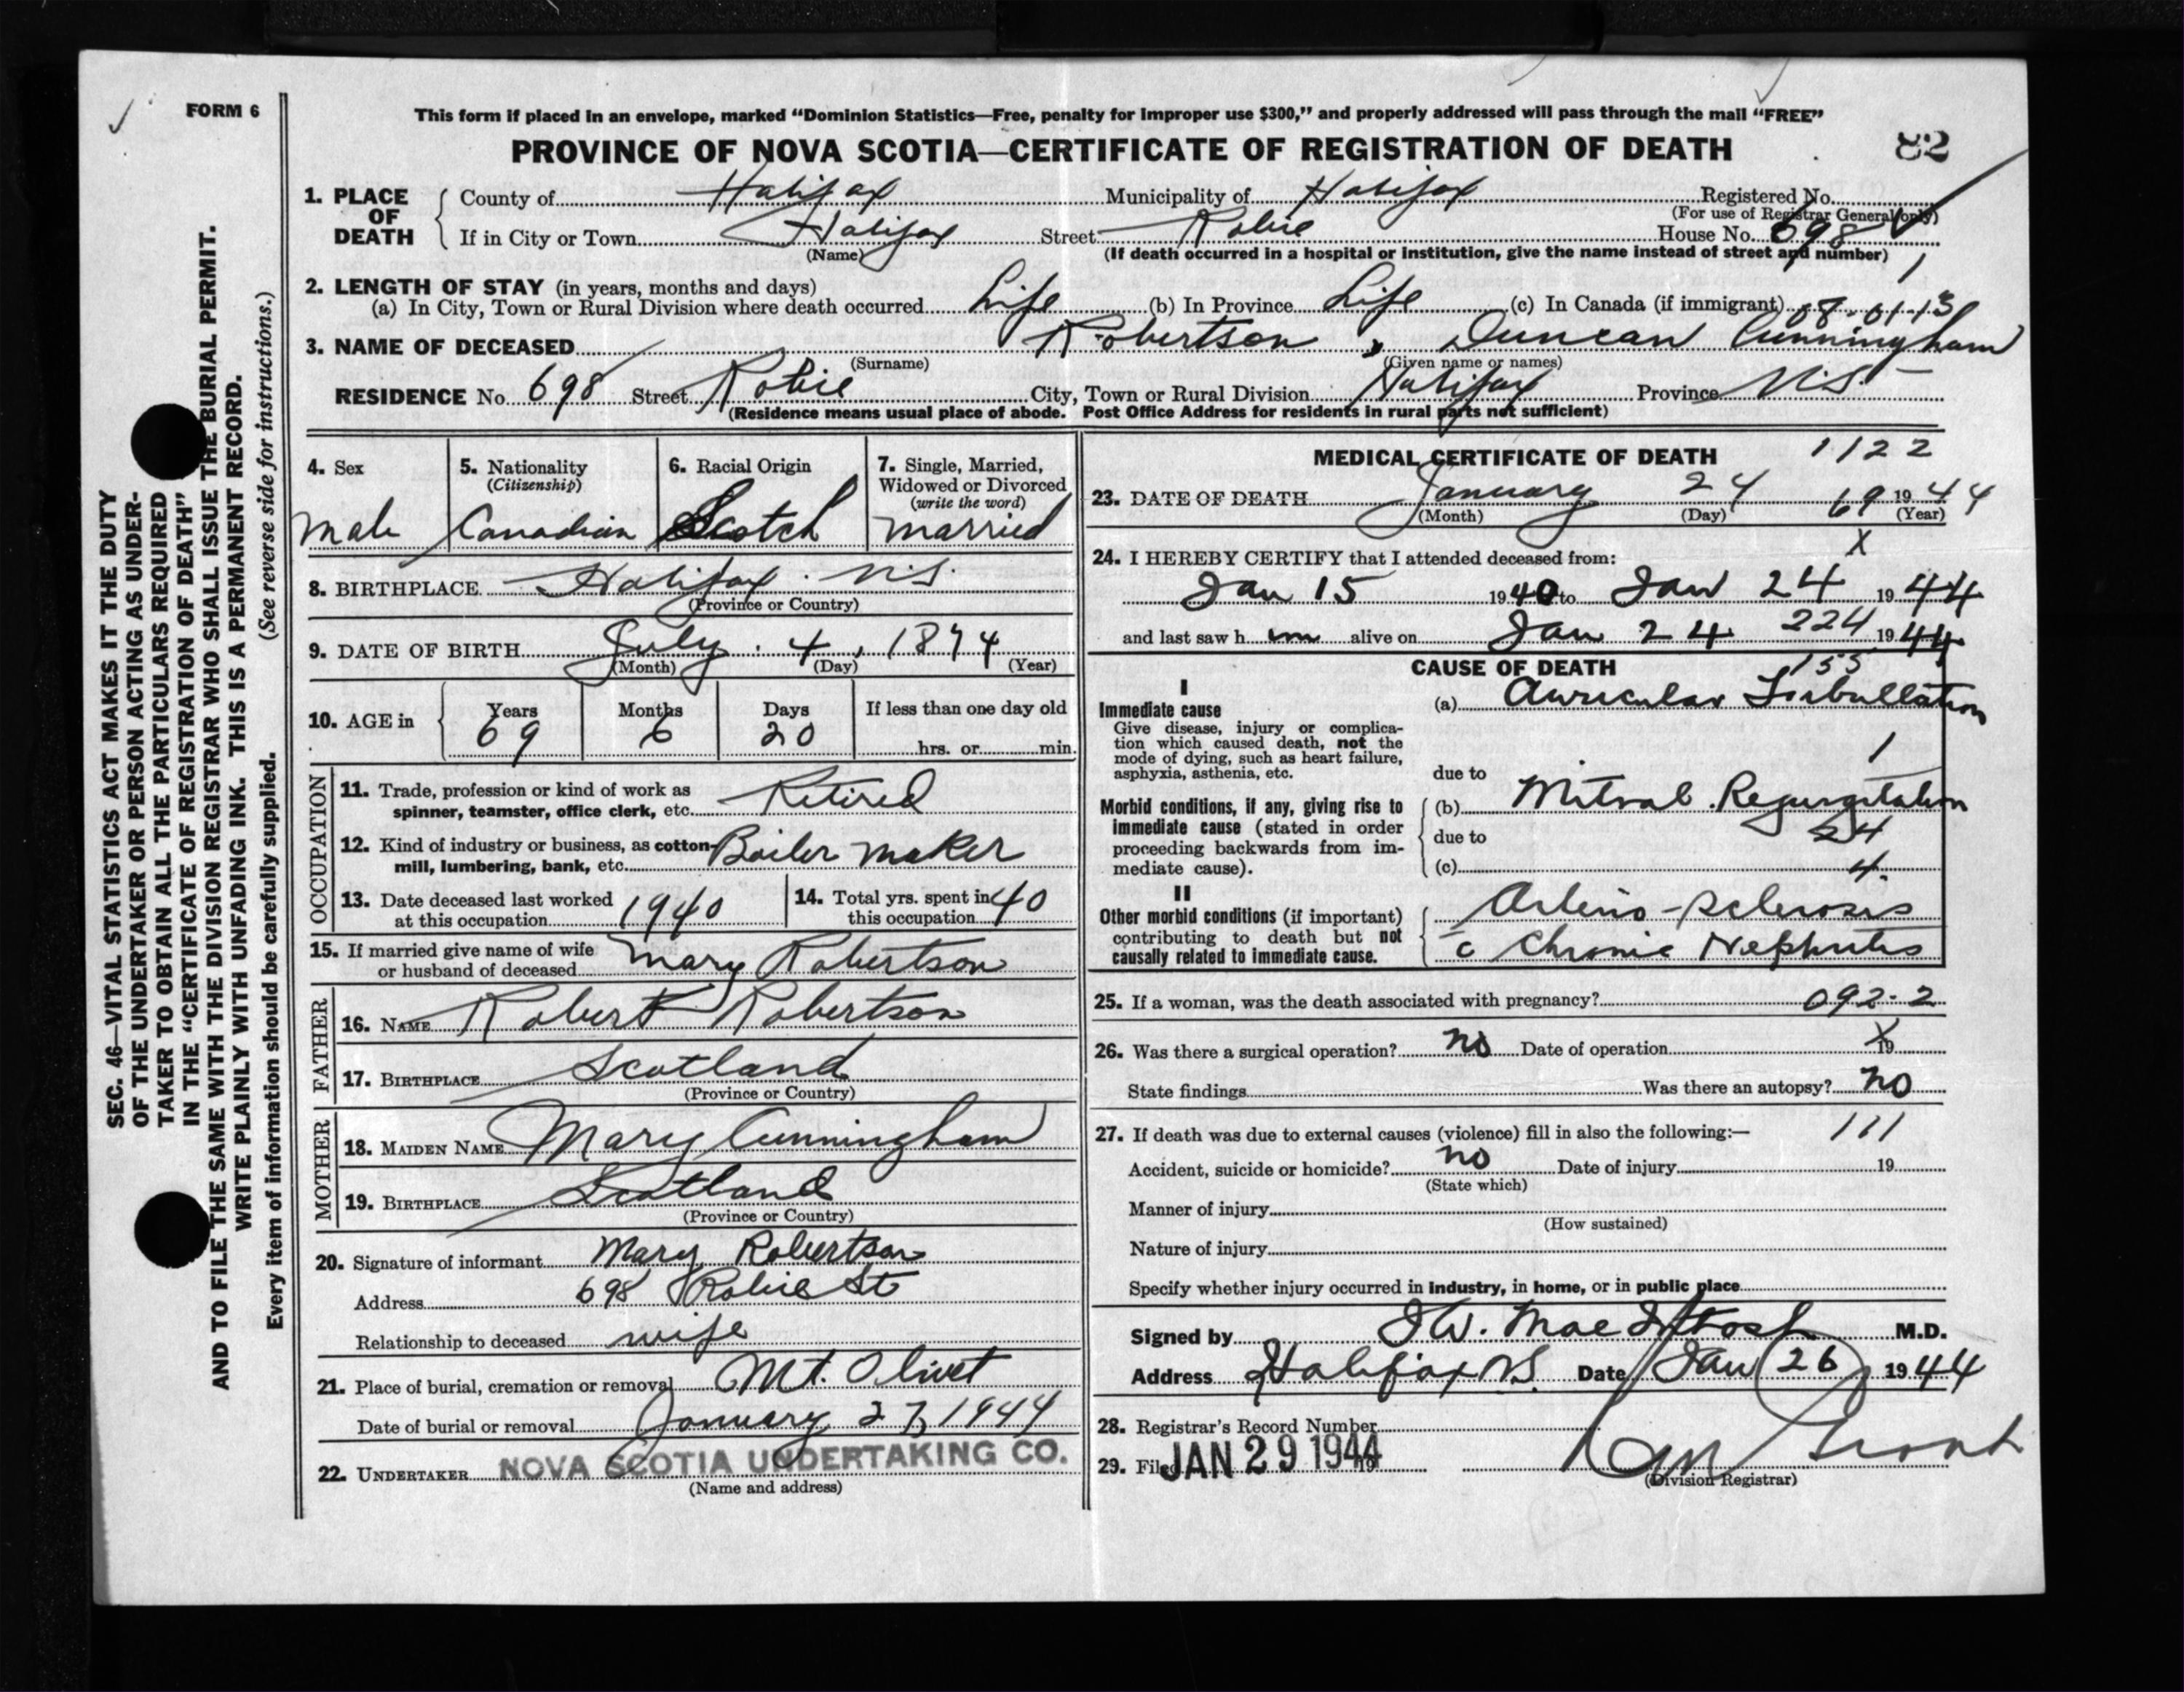 FORM 6
This form if placed in an envelope, marked “Dominion Statistics—Free, penalty for improper use $300,” and properly addressed will pass through the mail “FREE”
PROVINCE OF NOVA SCOTIA—CERTIFICATE OF REGISTRATION OF DEATH
82
SEC. 46—VITAL STATISTICS ACT MAKES IT THE DUTY
OF THE UNDERTAKER OR PERSON ACTING AS UNDER-
TAKER TO OBTAIN ALL THE PARTICULARS REQUIRED
IN THE “CERTIFICATE OF REGISTRATION OF DEATH”
AND TO FILE THE SAME WITH THE DIVISION REGISTRAR WHO SHALL ISSUE THE BURIAL PERMIT.
WRITE PLAINLY WITH UNFADING INK. THIS IS A PERMANENT RECORD.
Every item of information should be carefully supplied. (See reverse side for instructions.)
1. PLACE OF DEATH
County of Halifax Municipality of Halifax Registered No.
(For use of Registrar General only)
If in City or Town Halifax Street Robie House No. 698
(Name) (If death occurred in a hospital or institution, give the name instead of street and number)
2. LENGTH OF STAY (in years, months and days) 1
(a) In City, Town or Rural Division where death occurred Life (b) In Province Life (c) In Canada (if immigrant) 08-01-13
3. NAME OF DECEASED Robertson, Duncan Cunningham
(Surname) (Given name or names)
RESIDENCE No. 698 Street Robie City, Town or Rural Division Halifax Province N.S.
(Residence means usual place of abode. Post Office Address for residents in rural parts not sufficient)
4. Sex
male
5. Nationality
(Citizenship)
Canadian
6. Racial Origin
Scotch
7. Single, Married,
Widowed or Divorced
(write the word)
married
8. BIRTHPLACE Halifax. N.S.
(Province or Country)
9. DATE OF BIRTH July. 4, 1874
(Month) (Day) (Year)
10. AGE in Years Months Days If less than one day old
69 6 20 hrs. or min.
OCCUPATION
11. Trade, profession or kind of work as
spinner, teamster, office clerk, etc. Retired
12. Kind of industry or business, as cotton-
mill, lumbering, bank, etc. Boiler maker
13. Date deceased last worked
at this occupation 1940
14. Total yrs. spent in
this occupation 40
15. If married give name of wife
or husband of deceased Mary Robertson
FATHER
16. NAME Robert Robertson
17. BIRTHPLACE Scotland
(Province or Country)
MOTHER
18. MAIDEN NAME Mary Cunningham
19. BIRTHPLACE Scotland
(Province or Country)
20. Signature of informant Mary Robertson
Address 698 Robie St
Relationship to deceased wife
21. Place of burial, cremation or removal Mt. Olivet
Date of burial or removal January 27, 1944
22. UNDERTAKER NOVA SCOTIA UNDERTAKING CO.
(Name and address)
MEDICAL CERTIFICATE OF DEATH 1122
23. DATE OF DEATH January 24 69 1944
(Month) (Day) (Year)
24. I HEREBY CERTIFY that I attended deceased from: X
Jan 15 1940 to Jan 24 1944
and last saw h im alive on Jan 24 224 1944
CAUSE OF DEATH 155
I
Immediate cause
Give disease, injury or complica-
tion which caused death, not the
mode of dying, such as heart failure,
asphyxia, asthenia, etc.
(a) Auricular
1
due to
Morbid conditions, if any, giving rise to
immediate cause (stated in order
proceeding backwards from im-
mediate cause).
(b) Mitral Regurgitation
due to 24
(c) 4
II
Other morbid conditions (if important)
contributing to death but not
causally related to immediate cause.
Arterio-sclerosis
c Chronic Nephritis
25. If a woman, was the death associated with pregnancy? 092-2
26. Was there a surgical operation? no Date of operation X 19
State findings Was there an autopsy? no
27. If death was due to external causes (violence) fill in also the following:— 111
Accident, suicide or homicide? no Date of injury 19
(State which)
Manner of injury
(How sustained)
Nature of injury
Specify whether injury occurred in industry, in home, or in public place
Signed by J W. MacIntosh M.D.
Address Halifax N.S. Date Jan 26 1944
28. Registrar’s Record Number
29. Filed JAN 29 1944 19
(Division Registrar)